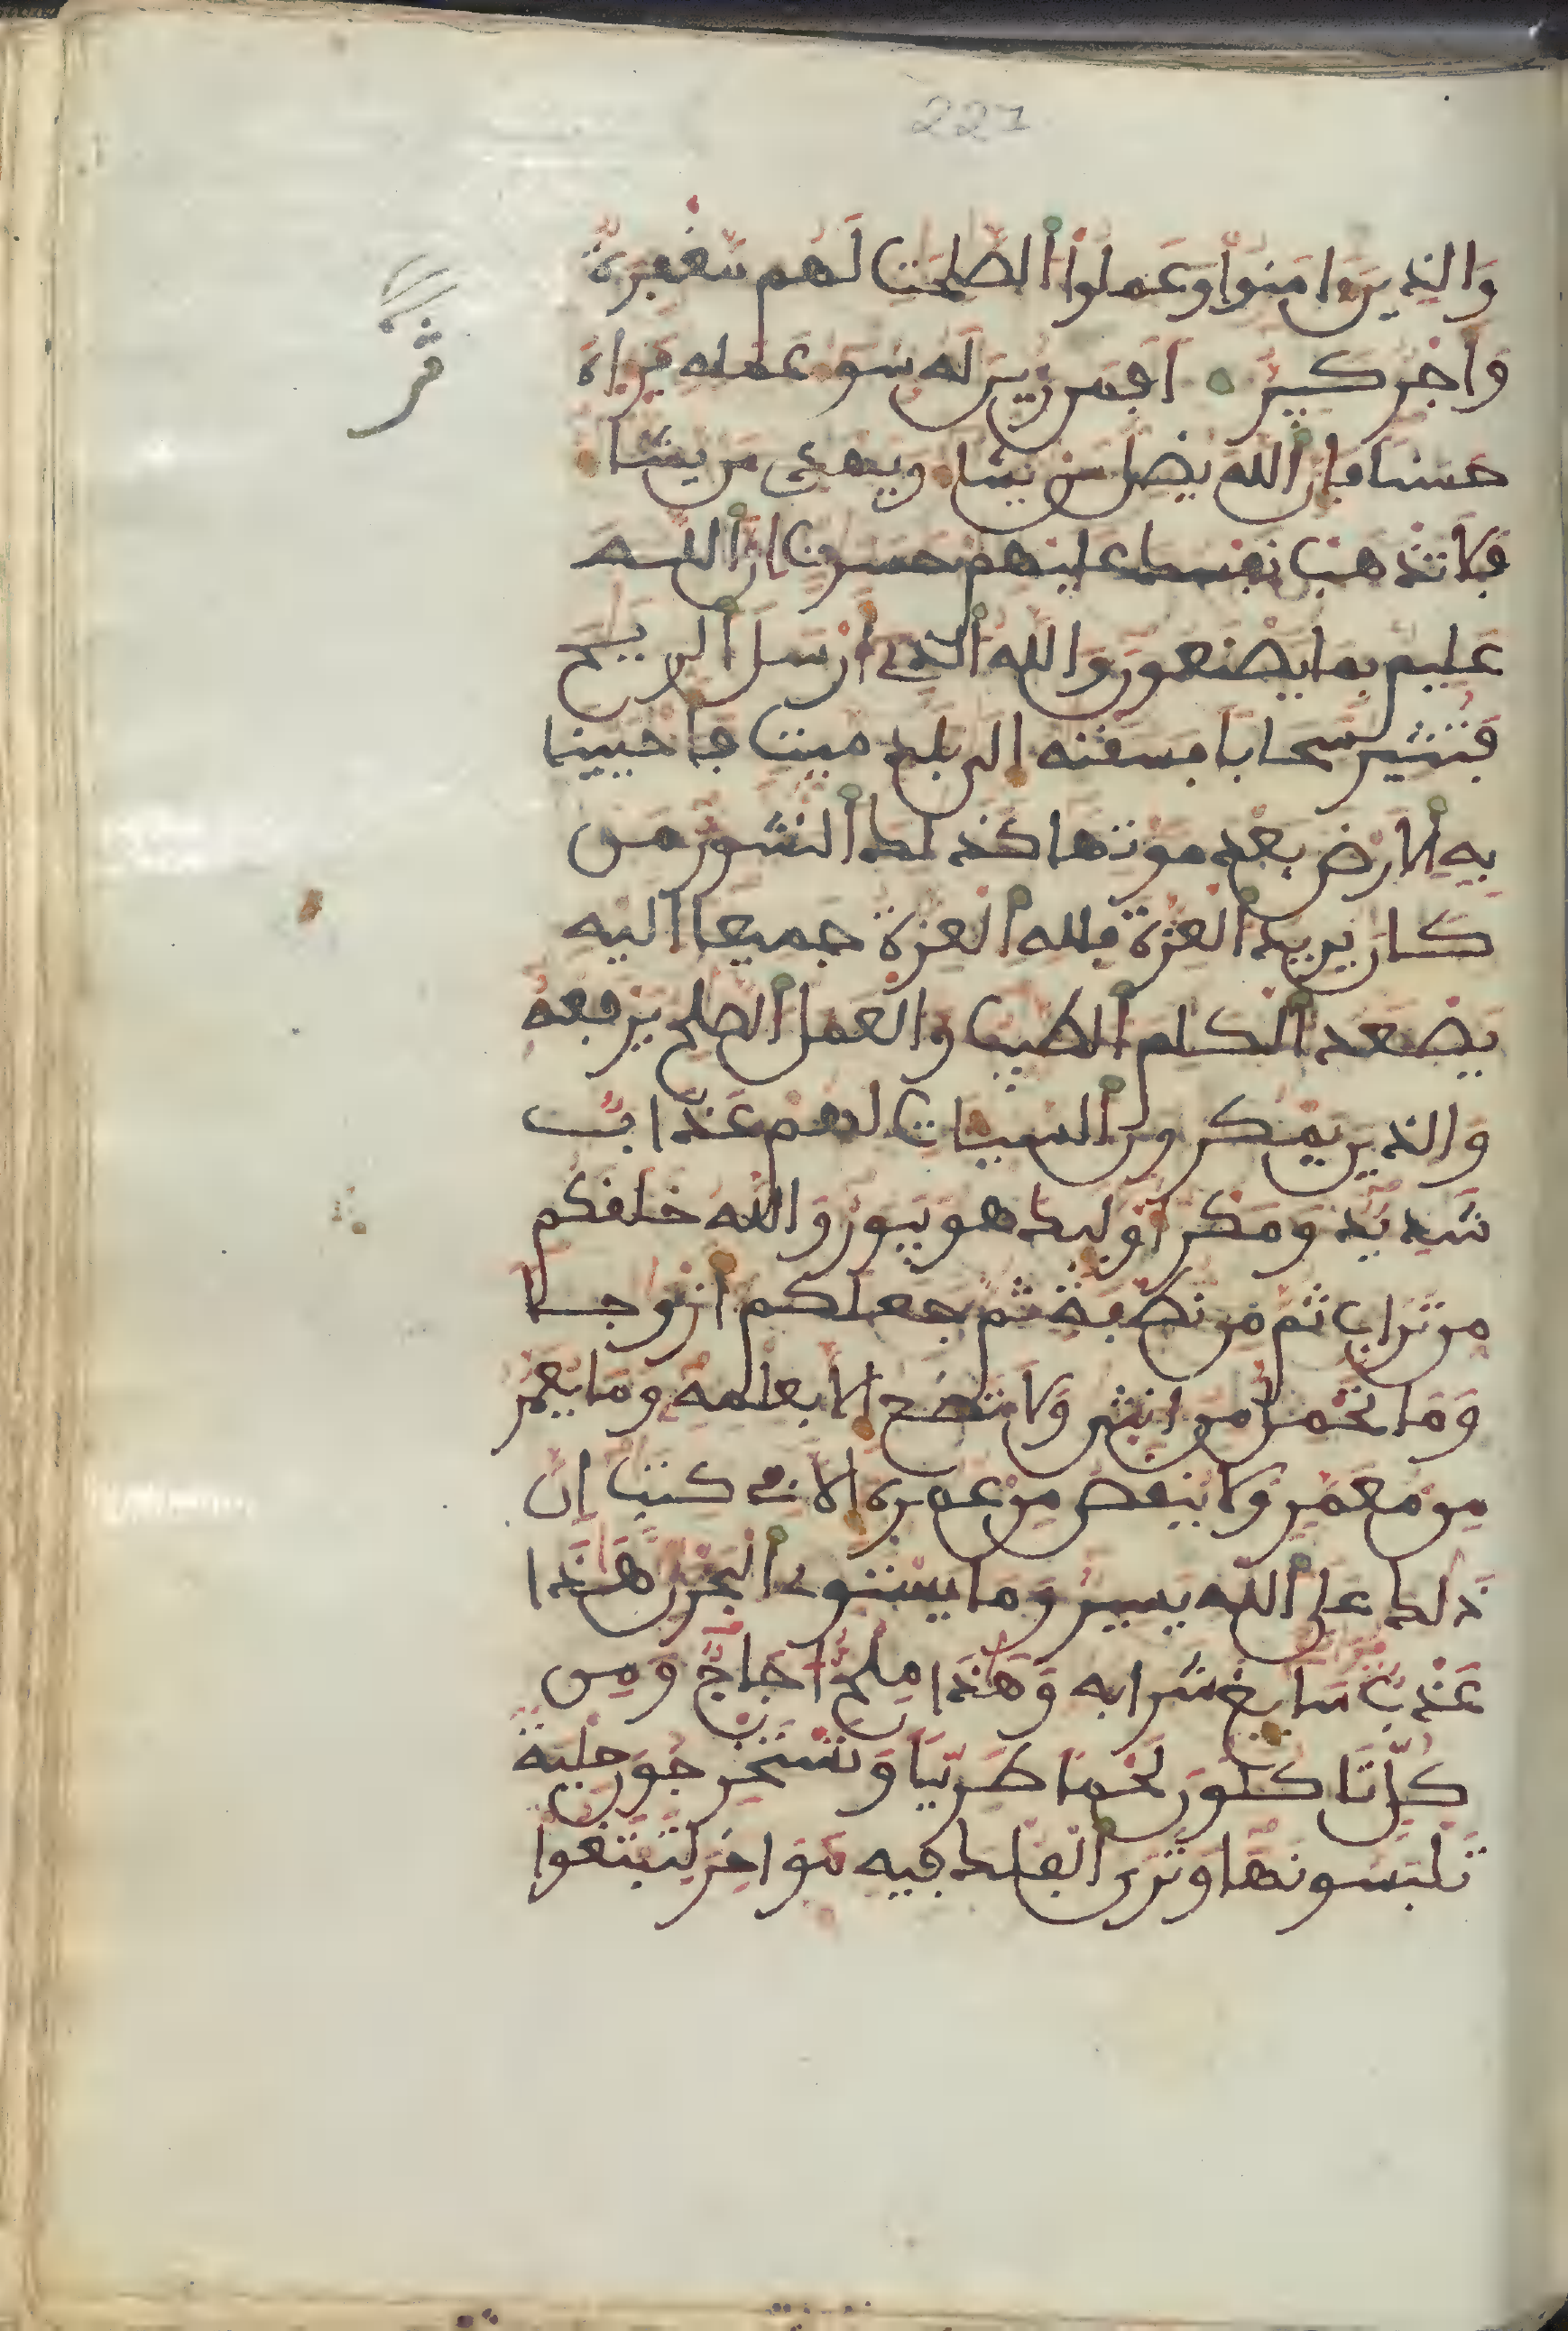 221
والذين امنوا وعملوا الصلحت لهم مغفرة
واجر كبير افمن زين له سوء عمله فراه
حسنا فان الله يضل من يشا ويهدي من يشا
فلا تذهب نفسك عليهم حسرت ان الله
عليم بما يصنعون والله الذي ارسل الريح
فتثير سحابا فسقنه الى بلد ميت فاحيينا
به الارض بعد موتها كذلك النشور من
كان يريد العزة فلله العزة جميعا اليه
يصعد الكلم الطيب والعمل الصلح يرفعه
والذين يمكرون السيات لهم عذاب
شديد ومكر اوليك هو يبور والله خلقكم
من تراب ثم من نطفة ثم جعلكم ازوجا
وما تحمل من انثى ولا تضع الا بعلمه وما يعمر
من معمر ولا ينقص من عمره الا في كتب ان
ذلك على الله يسير وما يستوي البحرن هذا
عذب سايغ شرابه وهذا ملح اجاج ومن
كل تاكلون لحما طريا وتستخرجون حلية
تلبسونها وترى الفلك فيه مواخر لتبتغوا